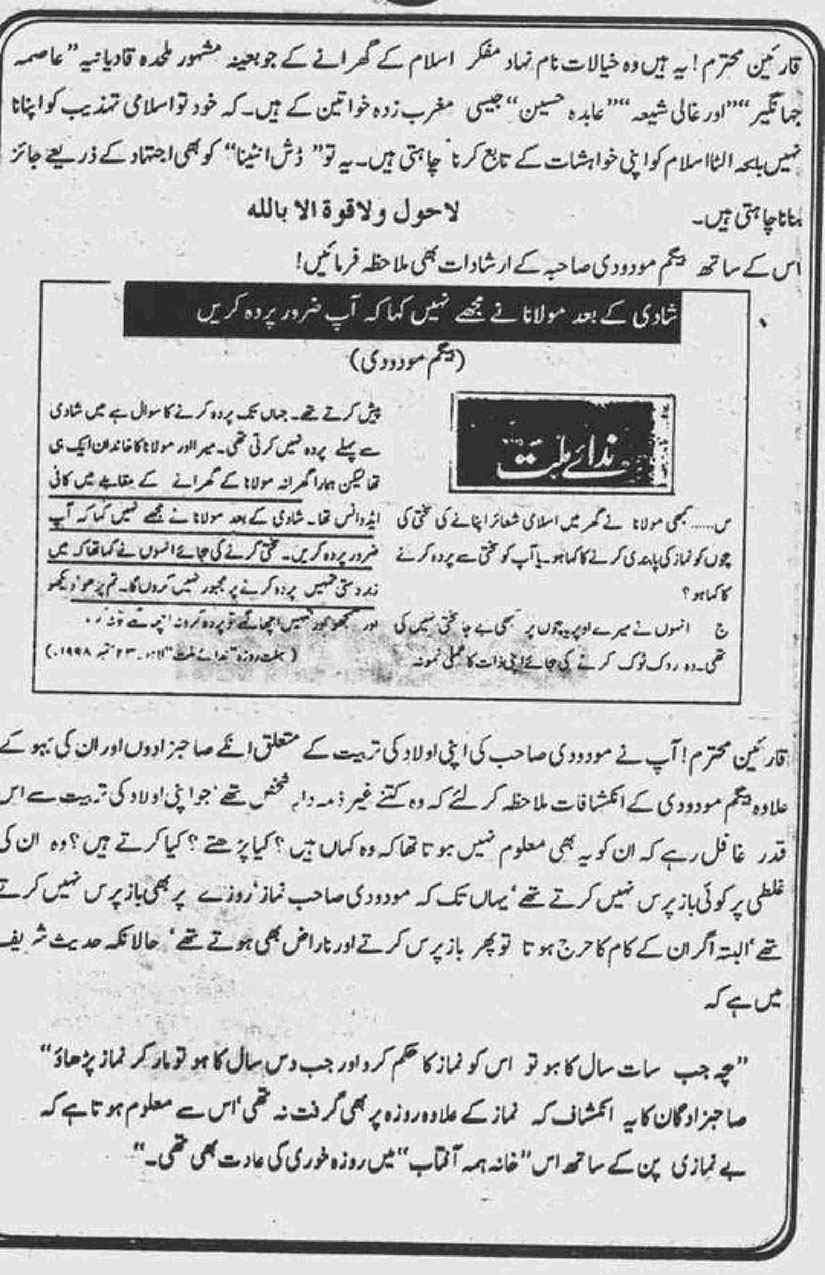 قارئین محترم! یہ ہیں وہ خیالات نام نہاد مفکر اسلام کے گھرانے کے جو بعینہ مشہور ملحدہ قادیانیہ "عاصمہ
جہانگیر" "اور غالی شیعہ" "عابدہ حسین" جیسی مغرب زدہ خواتین کے ہیں۔ کہ خود تو اسلامی تہذیب کو اپنانا
نہیں بلکہ الٹا اسلام کو اپنی خواہشات کے تابع کرنا چاہتی ہیں۔ یہ تو "ڈش انٹینا" کو بھی اجتہاد کے ذریعے جائز
بنانا چاہتی ہیں۔ لاحول ولا قوة الا بالله
اس کے ساتھ بیگم مودودی صاحبہ کے ارشادات بھی ملاحظہ فرمائیں!
شادی کے بعد مولانا نے مجھے نہیں کہا کہ آپ ضرور پردہ کریں
(بیگم مودودی)
ندائے ملت
س...... کبھی مولانا نے گھر میں اسلامی شعائر اپنانے کی سختی کی
بچوں کو نماز کی پابندی کرنے کا کہا ہو۔ یا آپ کو سختی سے پردہ کرنے
کا کہا ہو؟
ج انہوں نے میرے اوپر یا بچوں پر کبھی بے جا سختی نہیں کی
تھی۔ وہ روک ٹوک کرنے کی بجائے اپنی ذات کا عملی نمونہ
پیش کرتے تھے۔ جہاں تک پردہ کرنے کا سوال ہے میں شادی
سے پہلے پردہ نہیں کرتی تھی۔ میرا اور مولانا کا خاندان ایک ہی
تھا لیکن ہمارا گھرانہ مولانا کے گھرانے کے مقابلے میں کافی
ایڈوانس تھا۔ شادی کے بعد مولانا نے مجھے نہیں کہا کہ آپ
ضرور پردہ کریں۔ سختی کرنے کی بجائے انہوں نے کہا تھا کہ میں
زبردستی تمہیں پردہ کرنے پر مجبور نہیں کروں گا۔ تم پڑھو' دیکھو
اور سمجھو اور تمہیں اچھا لگے تو پردہ کرو نہ
(ہفت روزہ "ندائے ملت" لاہور۔ ۲۳ ستمبر ۱۹۹۸ء)
قارئین محترم! آپ نے مودودی صاحب کی اپنی اولاد کی تربیت کے متعلق انکے صاحبزادوں اور ان کی بہو کے
علاوہ بیگم مودودی کے انکشافات ملاحظہ کر لئے کہ وہ کتنے غیر ذمہ دار شخص تھے' جو اپنی اولاد کی تربیت سے اس
قدر غافل رہے کہ ان کو یہ بھی معلوم نہیں ہوتا تھا کہ وہ کہاں ہیں؟ کیا پڑھتے؟ کیا کرتے ہیں؟ وہ ان کی
غلطی پر کوئی باز پرس نہیں کرتے تھے' یہاں تک کہ مودودی صاحب نماز' روزے پر بھی باز پرس نہیں کرتے
تھے' البتہ اگر ان کے کام کا حرج ہوتا تو پھر باز پرس کرتے اور ناراض بھی ہوتے تھے' حالانکہ حدیث شریف
میں ہے کہ
"بچہ جب سات سال کا ہو تو اس کو نماز کا حکم کرو اور جب دس سال کا ہو تو مار کر نماز پڑھاؤ"
صاحبزادگان کا یہ انکشاف کہ نماز کے علاوہ روزہ پر بھی گرفت نہ تھی' اس سے معلوم ہوتا ہے کہ
بے نمازی پن کے ساتھ اس "خانہ ہمہ آفتاب" میں روزہ خوری کی عادت بھی تھی۔"